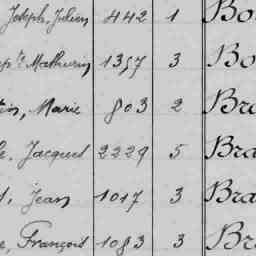 Joseph, Julien 442 1 Bo
Mathurin 1357 3 Bo
Marie 803 2 Bra
Jacques 2229 5 Bra
Jean 1017 3 Bra
François 1083 3 Br